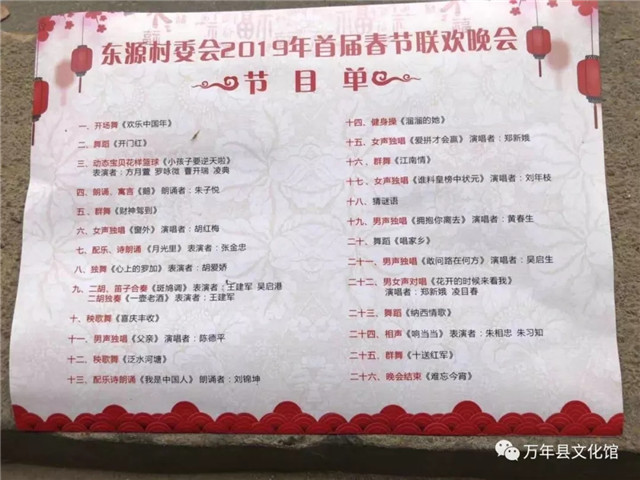 东源村委会2019年首届春节联欢晚会
节目单
一、开场舞《欢乐中国年》
二、舞蹈《开门红》
三、动态宝贝花样篮球《小孩子要逆天啦》
表演者：方月萱 罗咏微 曹开瑞 凌典
四、朗诵，寓言《题》朗诵者：朱子悦
五、群舞《财神驾到》
六、女声独唱《窗外》演唱者：胡红梅
七、配乐、诗朗诵《月光里》表演者：张金忠
八、独舞《心上的罗加》表演者：胡爱娇
九、二胡、笛子合奏《斑鸠调》表演者：王建军 吴启港
二胡独奏《一壶老酒》表演者：王建军
十、秧歌舞《喜庆丰收》
十一、男声独唱《父亲》演唱者：陈德平
十二、秧歌舞《泛水河塘》
十三、配乐诗朗诵《我是中国人》朗诵者：刘锦坤
十四、健身操《溜溜的她》
十五、女声独唱《爱拼才会赢》演唱者：郑新娥
十六、群舞《江南情》
十七、女声独唱《谁料皇榜中状元》演唱者：刘年枝
十八、猜谜语
十九、男声独唱《拥抱你离去》演唱者：黄春生
二十、舞蹈《唱家乡》
二十一、男声独唱《敢问路在何方》演唱者：吴启生
二十二、男女声对唱《花开的时候来看我》
演唱者：郑新娥 凌目春
二十三、舞蹈《纳西情歌》
二十四、相声《响当当》表演者：朱相忠 朱习知
二十五、群舞《十送红军》
二十六、晚会结束《难忘今宵》
万年县文化馆